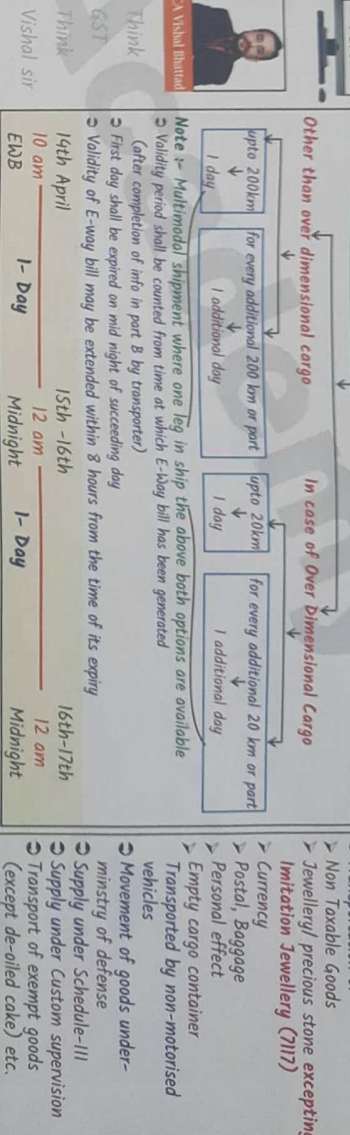 CA Vishal Bhattad
Think
GST
Think
Vishal sir
Other than over dimensional cargo
In case of Over Dimensional Cargo
upto 200km
1 day
for every additional 200 km or part
1 additional day
upto 20km
1 day
for every additional 20 km or part
1 additional day
Note :- Multimodal shipment where one leg in ship the above both options are available
➲ Validity period shall be counted from time at which E-Way bill has been generated
(after completion of info in part B by transporter)
➲ First day shall be expired on mid night of succeeding day
➲ Validity of E-way bill may be extended within 8 hours from the time of its expiry
14th April 15th -16th 16th-17th
10 am 12 am 12 am
EWB 1- Day Midnight 1- Day Midnight
➢ Non Taxable Goods
➢ Jewellery/ precious stone excepting
Imitation Jewellery (7117)
➢ Currency
➢ Postal, Baggage
➢ Personal effect
➢ Empty cargo container
Transported by non-motorised
vehicles
➲ Movement of goods under-
minstry of defense
➲ Supply under Schedule-III
➲ Supply under Custom supervision
➲ Transport of exempt goods
(except de-oiled cake) etc.